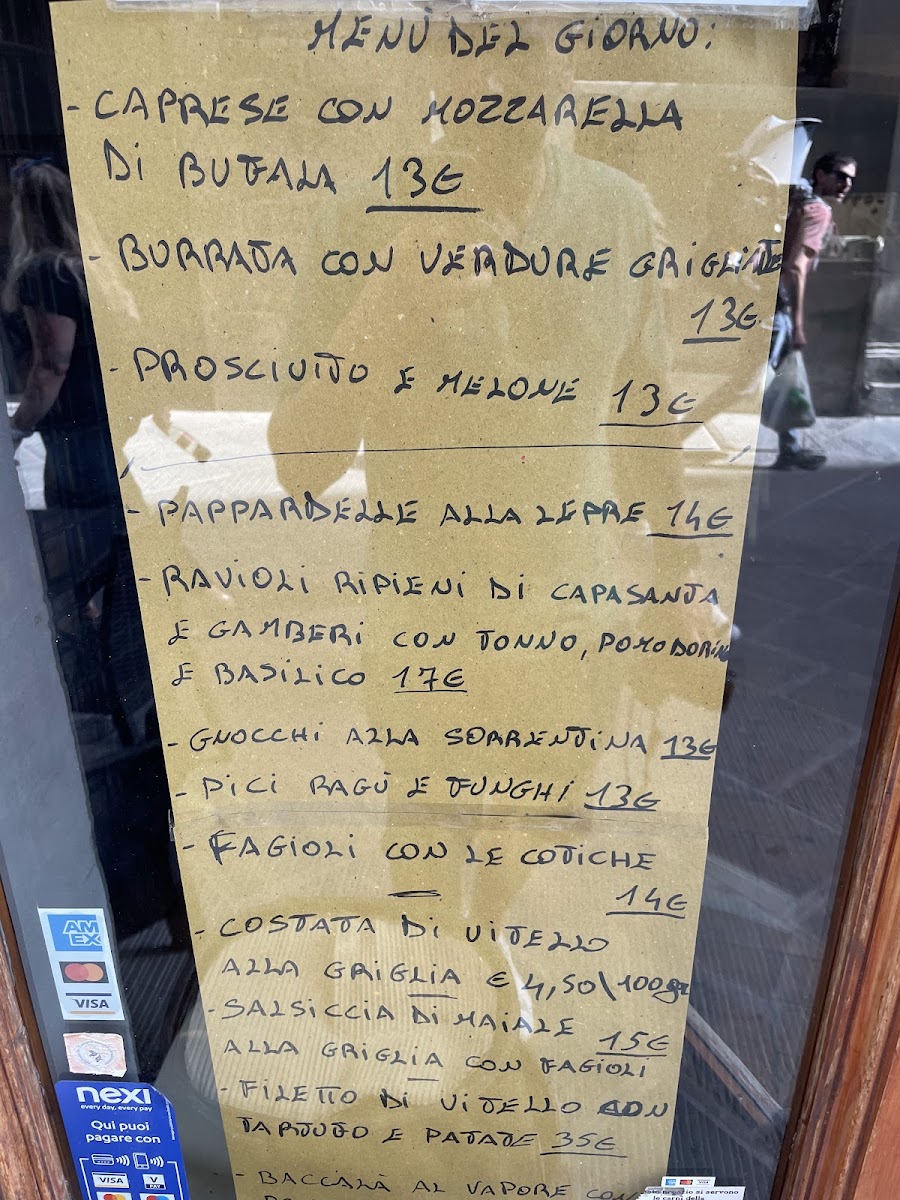 MENÙ DEL GIORNO:
- CAPRESE CON MOZZARELLA
DI BUFALA 13€
- BURRATA CON VERDURE GRIGLIATE
13€
- PROSCIUTTO E MELONE 13€
- PAPPARDELLE ALLA LEPRE 14€
- RAVIOLI RIPIENI DI CAPASANTA
E GAMBERI CON TONNO, POMODORINI
E BASILICO 17€
- GNOCCHI ALLA SORRENTINA 13€
- PICI RAGÙ E FUNGHI 13€
- FAGIOLI CON LE COTICHE
14€
- COSTATA DI VITELLO
ALLA GRIGLIA € 4,50\100gr
- SALSICCIA DI MAIALE
ALLA GRIGLIA CON FAGIOLI 15€
- FILETTO DI VITELLO CON
TARTUFO E PATATE 35€
- BACCALÀ AL VAPORE CON
AM
EX
VISA
nexi
every day, every pay
Qui puoi
pagare con
VISA
V
PAY
si servono
le carni della